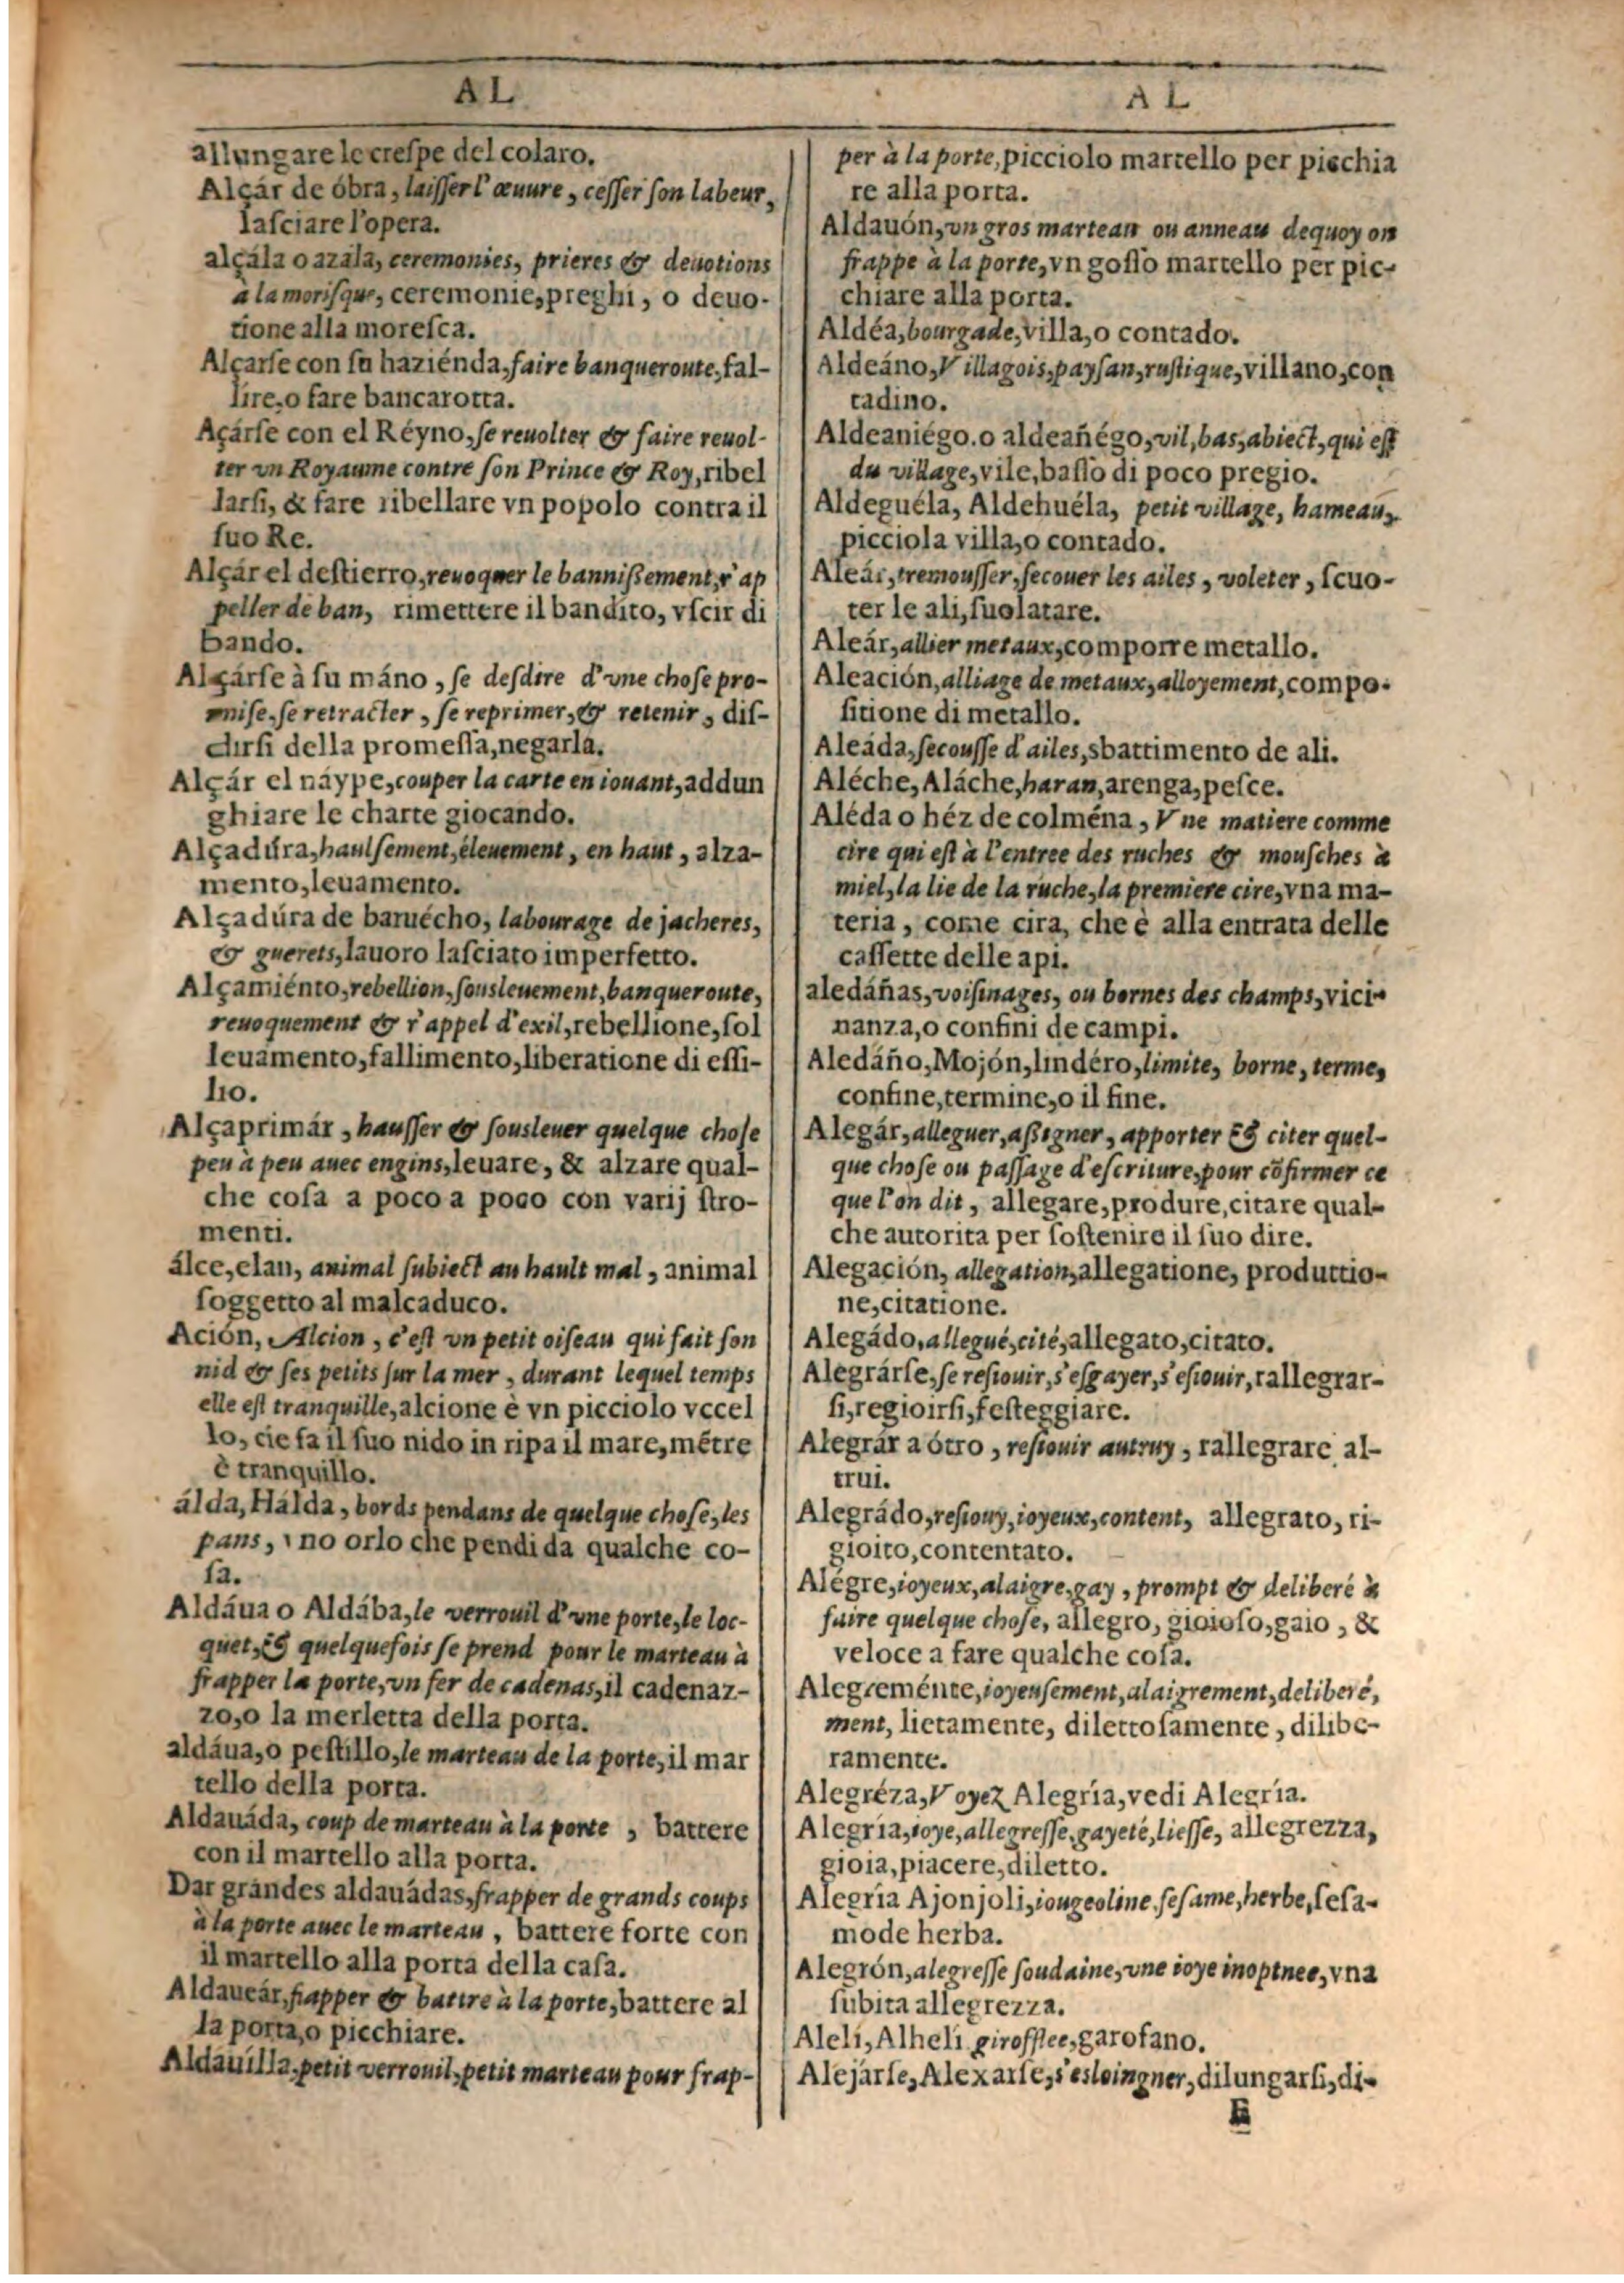 AL
allungare le crespe del colaro.
Alçár de óbra, laisser l'œuure, cesser son labeur,
lasciare l'opera.
alçála o azála, ceremonies, prieres & deuotions
à la morisque, ceremonie, preghi, o deuo-
tione alla moresca.
Alçarse con su haziénda, faire banqueroute, fal-
lire, o fare bancarotta.
Açárse con el Réyno, se reuolter & faire reuol-
ter vn Royaume contre son Prince & Roy, ribel
larsi, & fare ribellare vn popolo contra il
suo Re.
Alçár el destierro, reuoquer le bannissement, r'ap
peller de ban, rimettere il bandito, vscir di
bando.
Alçárse à su máno, se desdire d'vne chose pro-
mise, se retracter, se reprimer, & retenir, dis-
dirsi della promessa, negarla.
Alçár el náype, couper la carte en iouant, addun
ghiare le charte giocando.
Alçadúra, haulsement, éleuement, en haut, alza-
mento, leuamento.
Alçadúra de baruécho, labourage de jacheres,
& guerets, lauoro lasciato imperfetto.
Alçamiénto, rebellion, sousleuement, banqueroute,
reuoquement & r'appel d'exil, rebellione, sol
leuamento, fallimento, liberatione di essi-
lio.
Alçaprimár, hausser & sousleuer quelque chose
peu à peu auec engins, leuare, & alzare qual-
che cosa a poco a poco con varij stro-
menti.
álce, elan, animal subiect au hault mal, animal
soggetto al malcaduco.
Ación, Alcion, c'est vn petit oiseau qui fait son
nid & ses petits sur la mer, durant lequel temps
elle est tranquille, alcione è vn picciolo vccel
lo, cie fa il suo nido in ripa il mare, mẽtre
è tranquillo.
álda, Hálda, bords pendans de quelque chose, les
pans, vno orlo che pendi da qualche co-
sa.
Aldáua o Aldába, le verrouil d'vne porte, le loc-
quet, & quelquefois se prend pour le marteau à
frapper la porte, vn fer de cadenas, il cadenaz-
zo, o la merletta della porta.
aldáua, o pestillo, le marteau de la porte, il mar
tello della porta.
Aldauáda, coup de marteau à la porte, battere
con il martello alla porta.
Dar grándes aldauádas, frapper de grands coups
à la porte auec le marteau, battere forte con
il martello alla porta della casa.
Aldaueár, frapper & battre à la porte, battere al
la porta, o picchiare.
Aldauílla, petit verrouil, petit marteau pour frap-
AL
per à la porte, picciolo martello per piechia
re alla porta.
Aldauón, vn gros marteau ou anneau dequoy on
frappe à la porte, vn gosso martello per pic-
chiare alla porta.
Aldéa, bourgade, villa, o contado.
Aldeáno, Villagois, paysan, rustique, villano, con
tadino.
Aldeaniégo. o aldeañégo, vil, bas, abiect, qui est
du village, vile, basso di poco pregio.
Aldeguéla, Aldehuéla, petit village, hameau,
picciola villa, o contado.
Aleár, tremousser, secouer les ailes, voleter, scuo-
ter le ali, suolatare.
Aleár, allier metaux, comporre metallo.
Aleación, alliage de metaux, alloyement, compo-
sitione di metallo.
Aleáda, secousse d'ailes, sbattimento de ali.
Aléche, Aláche, haran, arenga, pesce.
Aléda o héz de colména, Vne matiere comme
cire qui est à l'entree des ruches & mousches à
miel, la lie de la ruche, la premiere cire, vna ma-
teria, come cira, che è alla entrata delle
cassette delle api.
aledáñas, voisinages, ou bornes des champs, vici-
nanza, o confini de campi.
Aledáño, Mojón, lindéro, limite, borne, terme,
confine, termine, o il fine.
Alegár, alleguer, assigner, apporter & citer quel-
que chose ou passage d'escriture, pour cõfirmer ce
que l'on dit, allegare, produre, citare qual-
che autorita per sostenire il suo dire.
Alegación, allegation, allegatione, produttio-
ne, citatione.
Alegádo, allegué, cité, allegato, citato.
Alegrárse, se resiouir, s'esgayer, s'esiouir, rallegrar-
si, regioirsi, festeggiare.
Alegrár a ótro, resiouir autruy, rallegrare al-
trui.
Alegrádo, resiouy, ioyeux, content, allegrato, ri-
gioito, contentato.
Alégre, ioyeux, alaigre, gay, prompt & deliberé à
faire quelque chose, allegro, gioioso, gaio, &
veloce a fare qualche cosa.
Alegreménte, ioyeusement, alaigrement, deliberé,
ment, lietamente, dilettosamente, dilibe-
ramente.
Alegréza, Voyez Alegría, vedi Alegría.
Alegría, ioye, allegresse, gayeté, liesse, allegrezza,
gioia, piacere, diletto.
Alegría Ajonjoli, iougeoline, sesame, herbe, sesa-
mode herba.
Alegrón, alegresse soudaine, vne ioye inopinee, vna
subita allegrezza.
Alelí, Alhelí girofflee, garofano.
Alejárse, Alexarse, s'esloingner, dilungarsi, di-
E